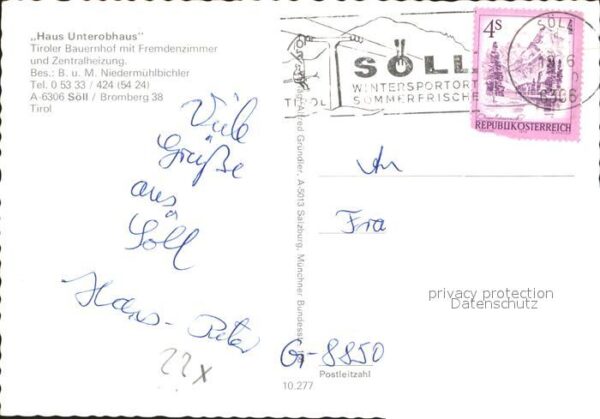 „Haus Unterobhaus"
Tiroler Bauernhof mit Fremdenzimmer
und Zentralheizung.
Bes.: B. u. M. Niedermühlbichler
Tel. 0 53 33 / 424 (54 24)
A-6306 Söll / Bromberg 38
Tirol
Viele
Grüße
aus
Söll
Hans-Peter
22x
Alfred Gründler, A-5013 Salzburg, Münchner Bundesstr.
TIROL
SÖLL
WINTERSPORTORT
SOMMERFRISCHE
SÖLL
6306
4s
REPUBLIK ÖSTERREICH
An
Fra
privacy protection
Datenschutz
G-8850
Postleitzahl
10.277